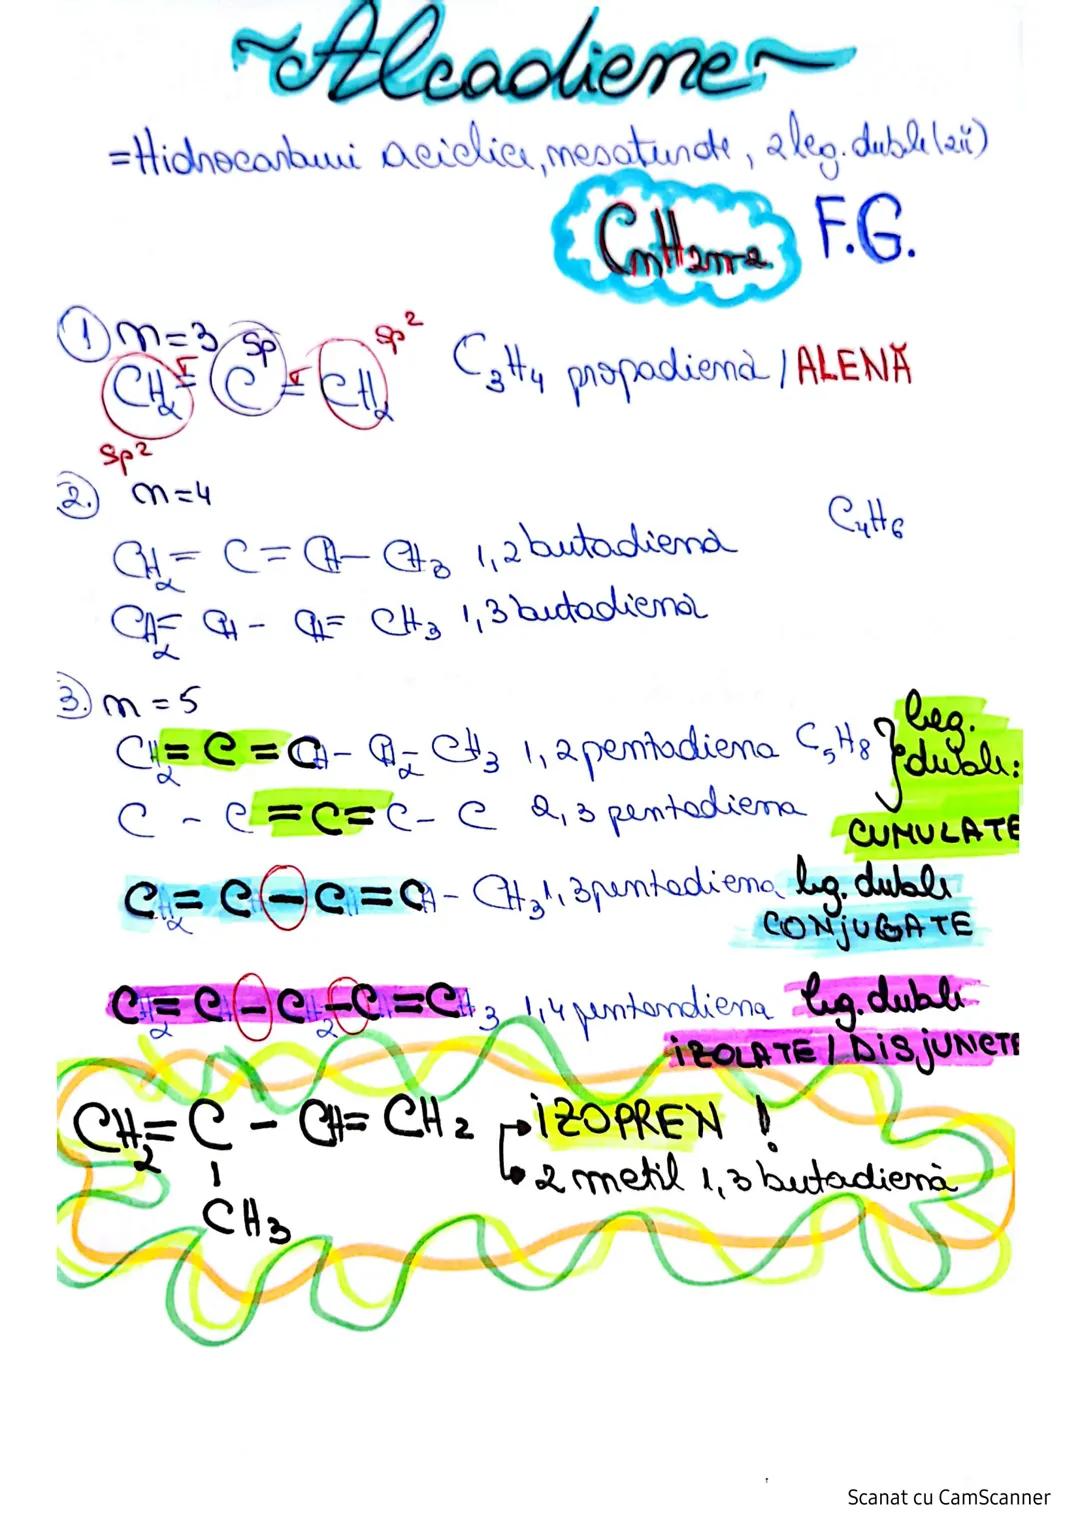 ~Alcadiene~
=Hidrocarburi aciclice, nesaturate, 2 leg. duble (2π)
CnH2n-2 F.G.
1 n=3 sp sp²
CH2 = C = CH2 C3H4 propadienă / ALENĂ
sp²
2. n=4
C4H6
CH2 = C = CH - CH3 1,2 butadienă
CH2 = CH - CH = CH3 1,3 butadienă
3. n=5
CH2 = C = CH - CH2 - CH3 1,2 pentadiena C5H8 } leg. duble:
C - C = C = C - C 2,3 pentadiena
CUMULATE
CH2 = CH - CH = CH - CH3 1,3 pentadiena leg. duble
CONJUGATE
CH2 = CH - CH2 - CH = CH3 1,4 pentandiena leg. duble
IZOLATE / DISJUNCTE
CH2 = C - CH = CH2 IZOPREN !
2 metil 1,3 butadienă
CH3
Scanat cu CamScanner